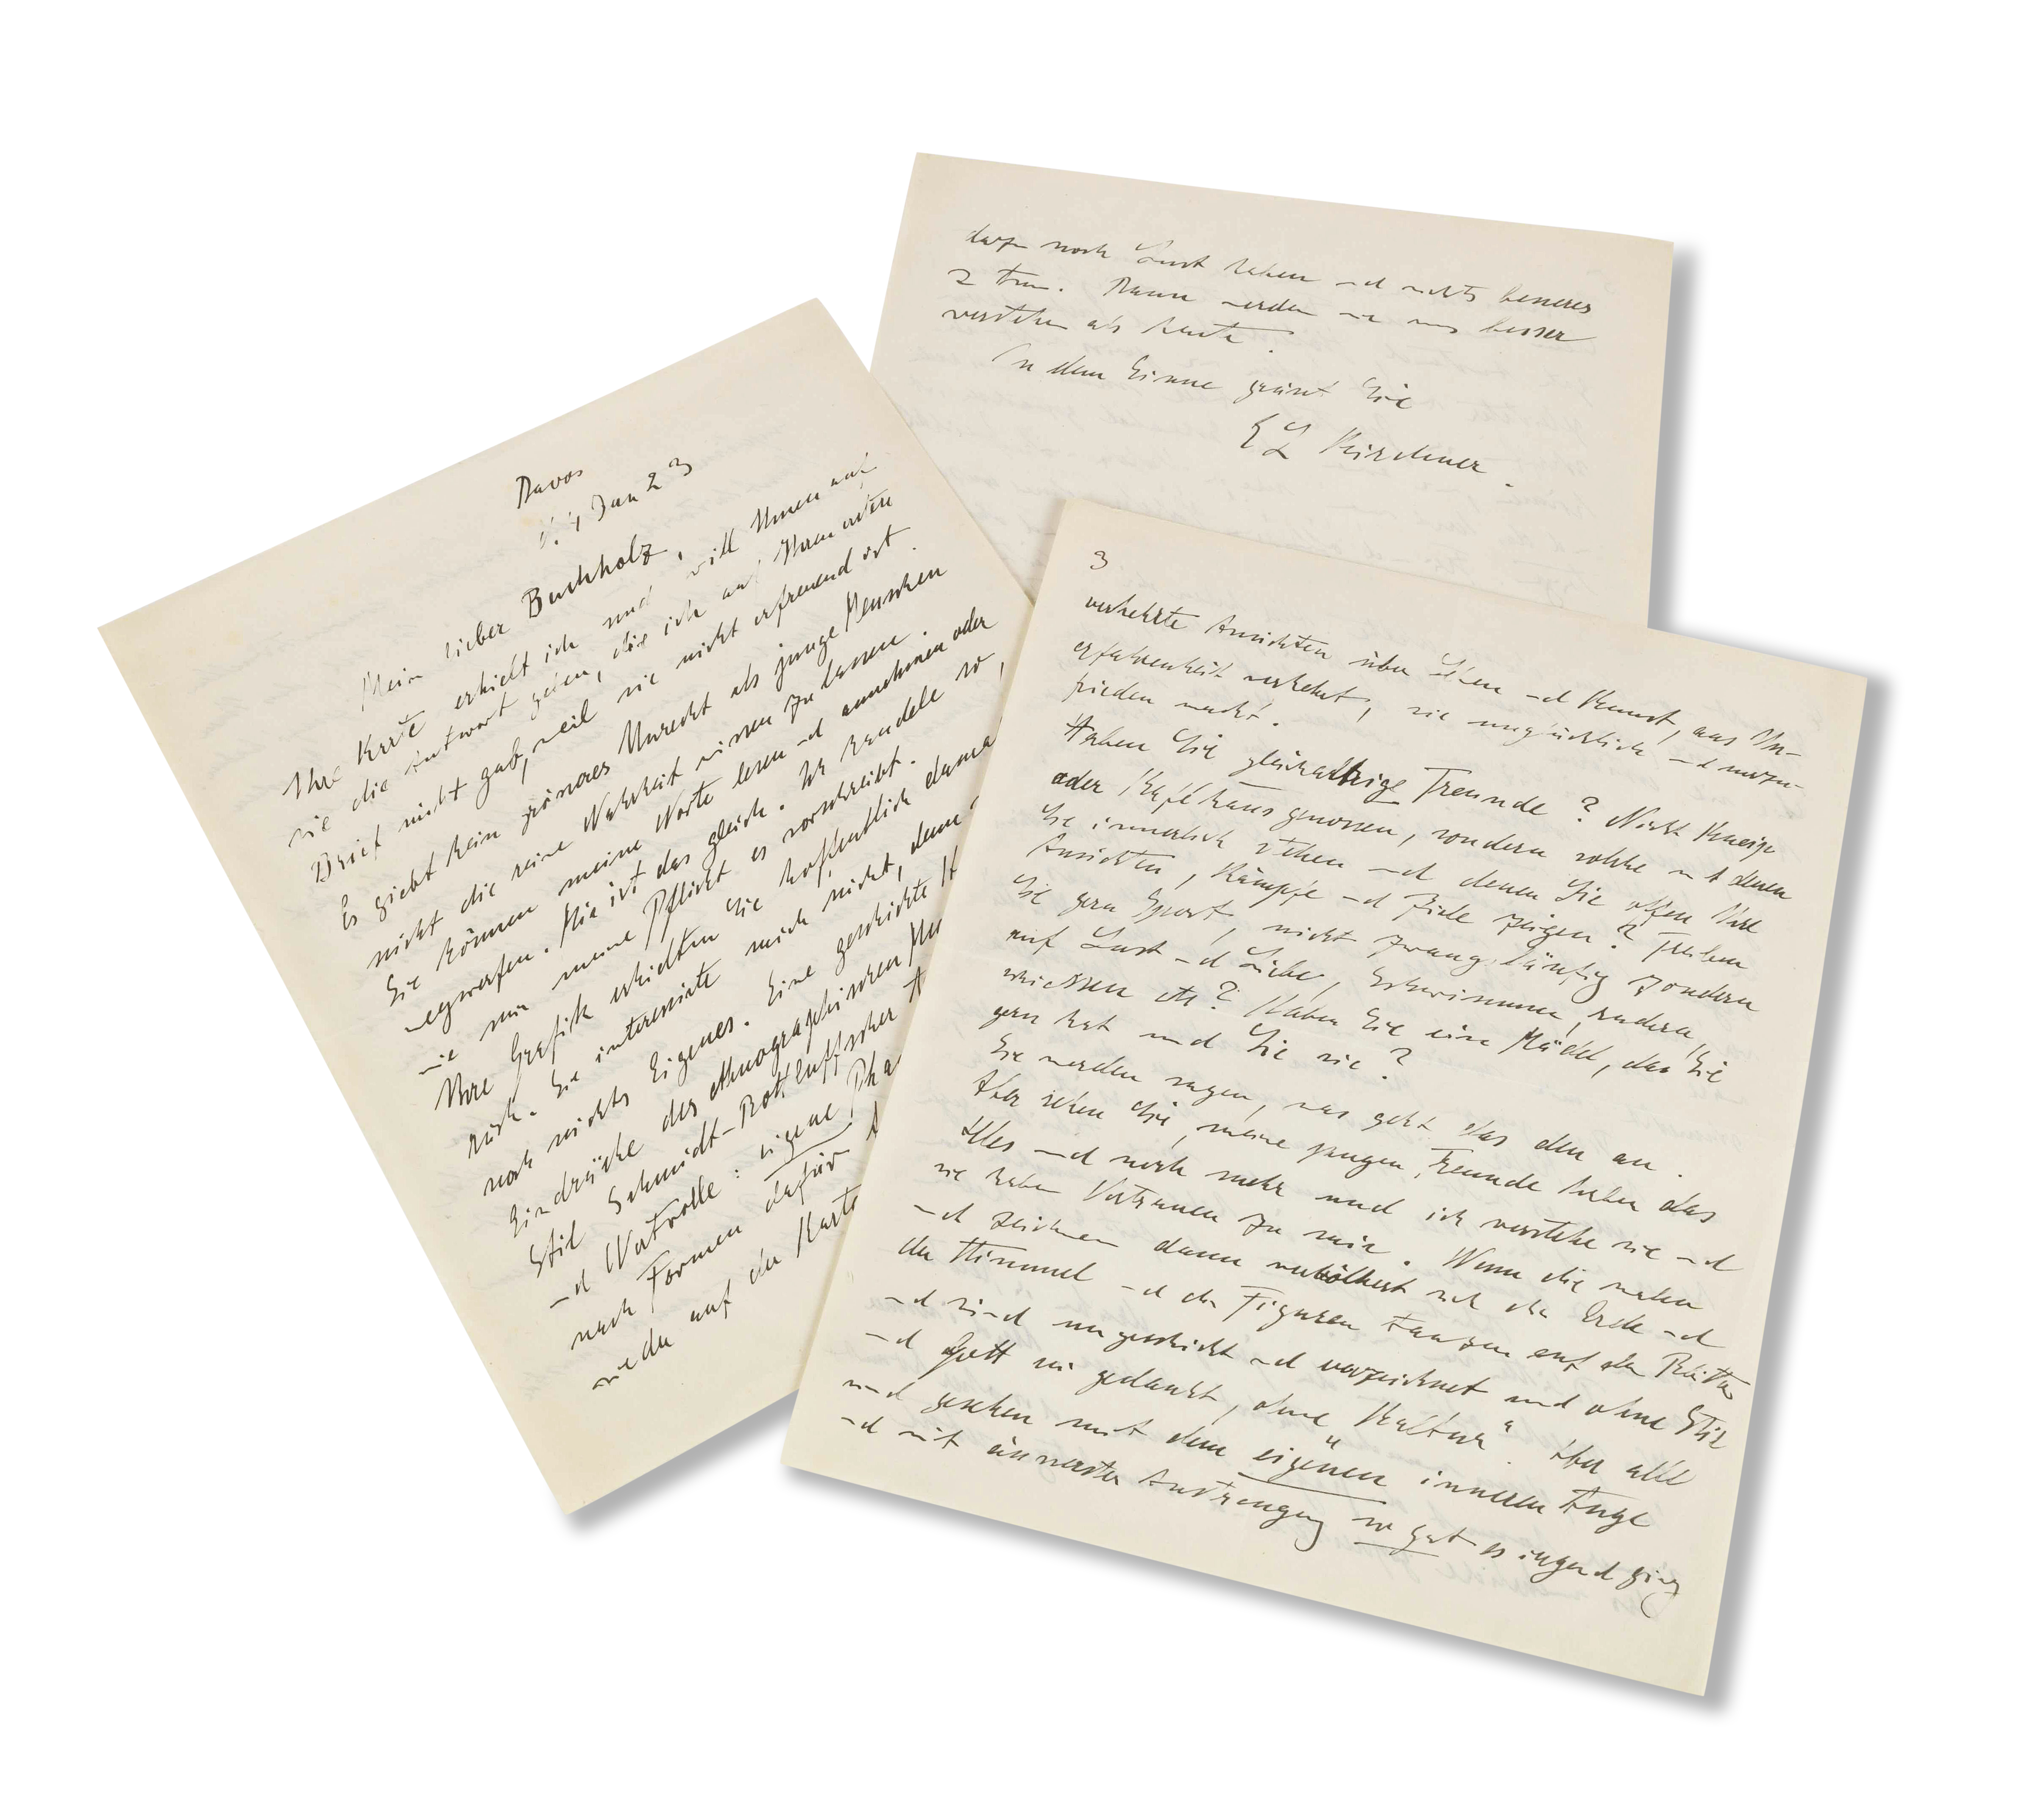 Davos
Jan 23
Mein lieber Buchholz,
Ihre Karte erhielt ich und will Ihnen auf
sie die Antwort geben, die ich auf Ihren ersten
Brief nicht gab, weil sie nicht erfreuend ist.
Es giebt kein grösseres Unrecht als junge Menschen
nicht die reine Wahrheit wissen zu lassen.
Sie können meine Worte lesen und annehmen oder
wegwerfen. Mir ist das gleich. Ich handele so,
wie mir meine Pflicht es vorschreibt.
Ihre Grafik erhielten Sie hoffentlich dama
rück. Sie interessierte mich nicht, denn
noch nichts Eigenes. Eine geschickte
Eindrücke des ethnographischen Mu
Stil Schmidt-Rottluffscher
und Wertvolle: eigene Pha
nach Formen dafür
wieder auf der Karte
darzu noch Lust haben und nichts besseres
z tun. Dann werden wir uns besser
verstehen als heute.
In dem Sinne grüsst Sie
E L Kirchner.
3
verkehrte Ansichten über Leben und Kunst, aus Un-
erfahrenheit verkehrt, sie unglücklich und unzu-
frieden macht.
Haben Sie gleichaltrige Freunde? Nicht Kneip-
oder Kafehausgenossen, sondern solche mit denen
Sie innerlich stehen und denen Sie offen Ihre
Ansichten, Kämpfe und Ziele zeigen? Treiben
Sie gern Sport, nicht zwangläufig sondern
auf Lust und Liebe, Schwimmen, rudern,
schiessen etc? Haben Sie eine Mädel, das Sie
gern hat und Sie sie?
Sie werden sagen, was geht das den an.
Aber sehen Sie, meine jungen Freunde haben das
Alles und noch mehr und ich verstehe sie und
sie haben Vertrauen zu mir. Wenn die malen
und zeichnen dann bevölkert sich die Erde und
der Himmel und die Figuren tanzen auf den Blättern
und sind ungeschickt und verzeichnet und ohne Stil
und Gott sei gedankt, ohne "Kultur". Aber alle
sind gesehen mit dem eigenen inneren Auge
und mit äusserster Anstrengung so gut es irgend ging